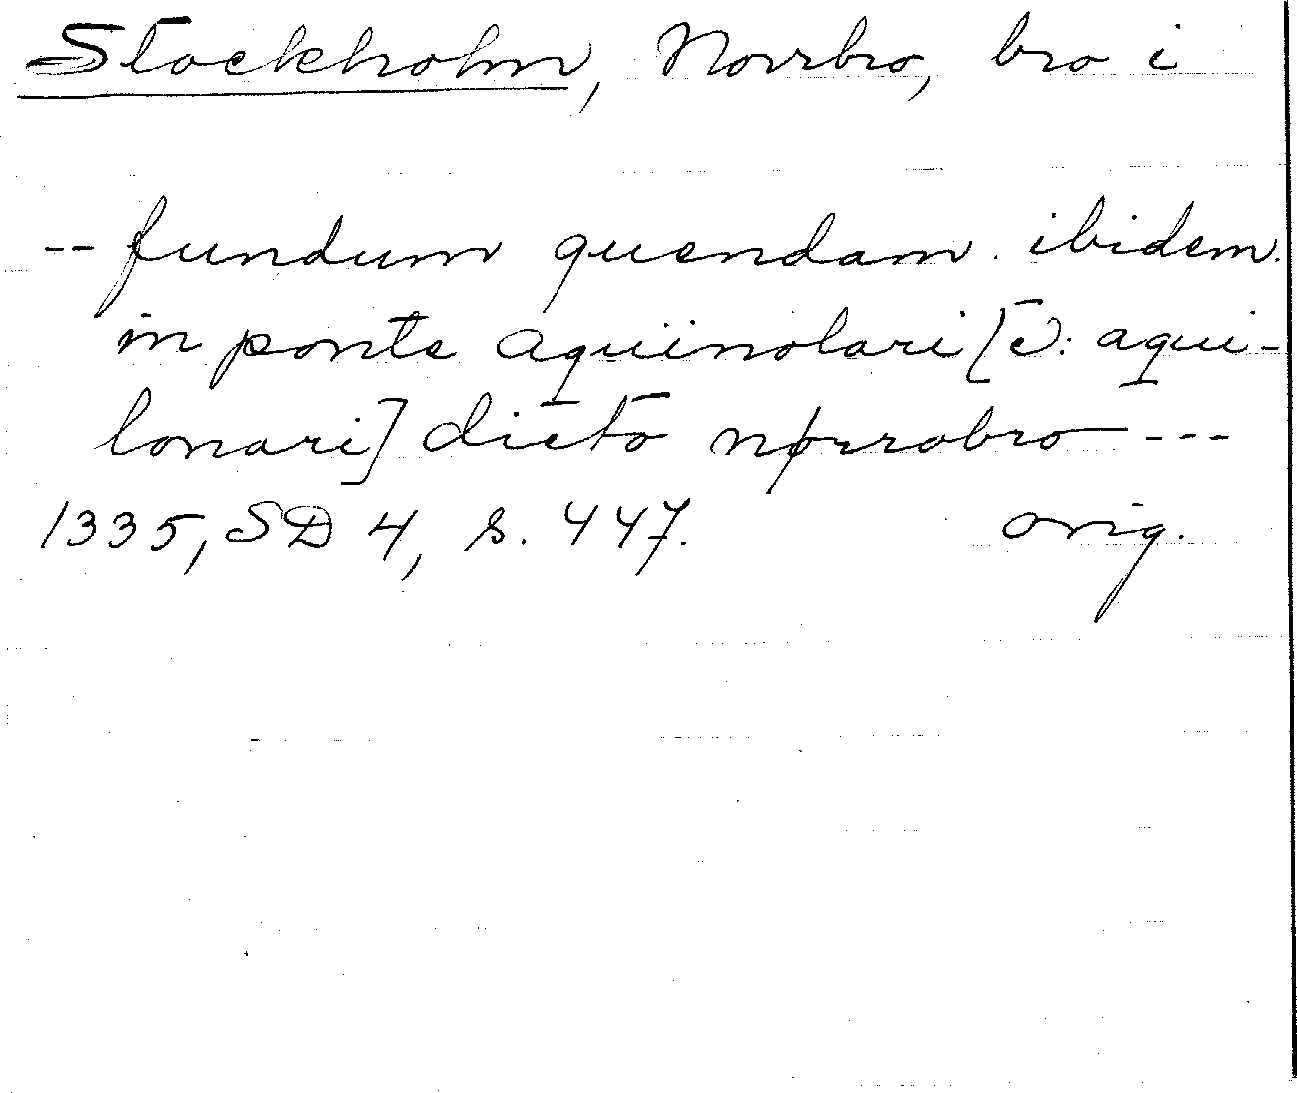 Stockholm, Norrbro, bro i
-- fundum quendam ibidem
in ponte aquinolari [ɔ: aqui-
lonari] dicto nørrobro ---
1335, SD 4, s. 447. orig.